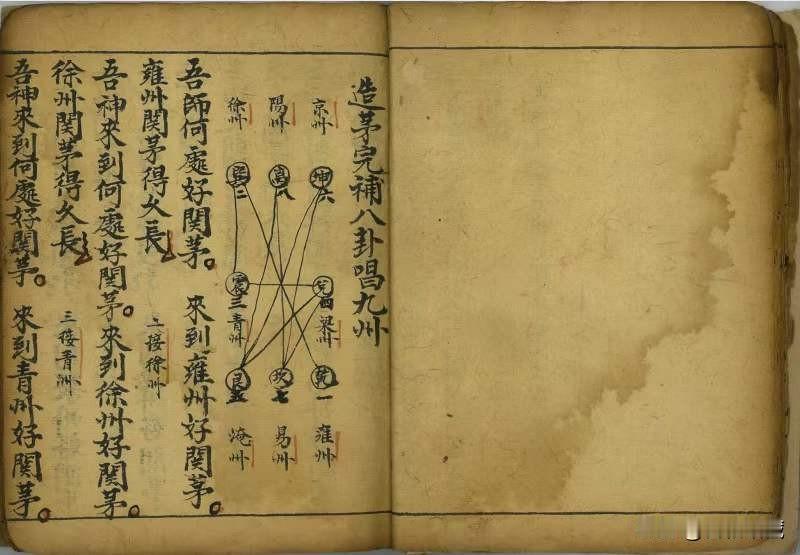 造茅完補八卦唱九州
京州
坤六
兌四
梁州
乾一
雍州
陽州
离八
坎七
易州
徐州
巽二
震三
青州
艮五
兗州
吾師何處好関茅。來到雍州好関茅。
雍州関茅得久長
二接徐州
吾神來到何處好関茅。來到徐州好関茅。
徐州関茅得久長
三接青州
吾神來到何處好関茅。來到青州好関茅。